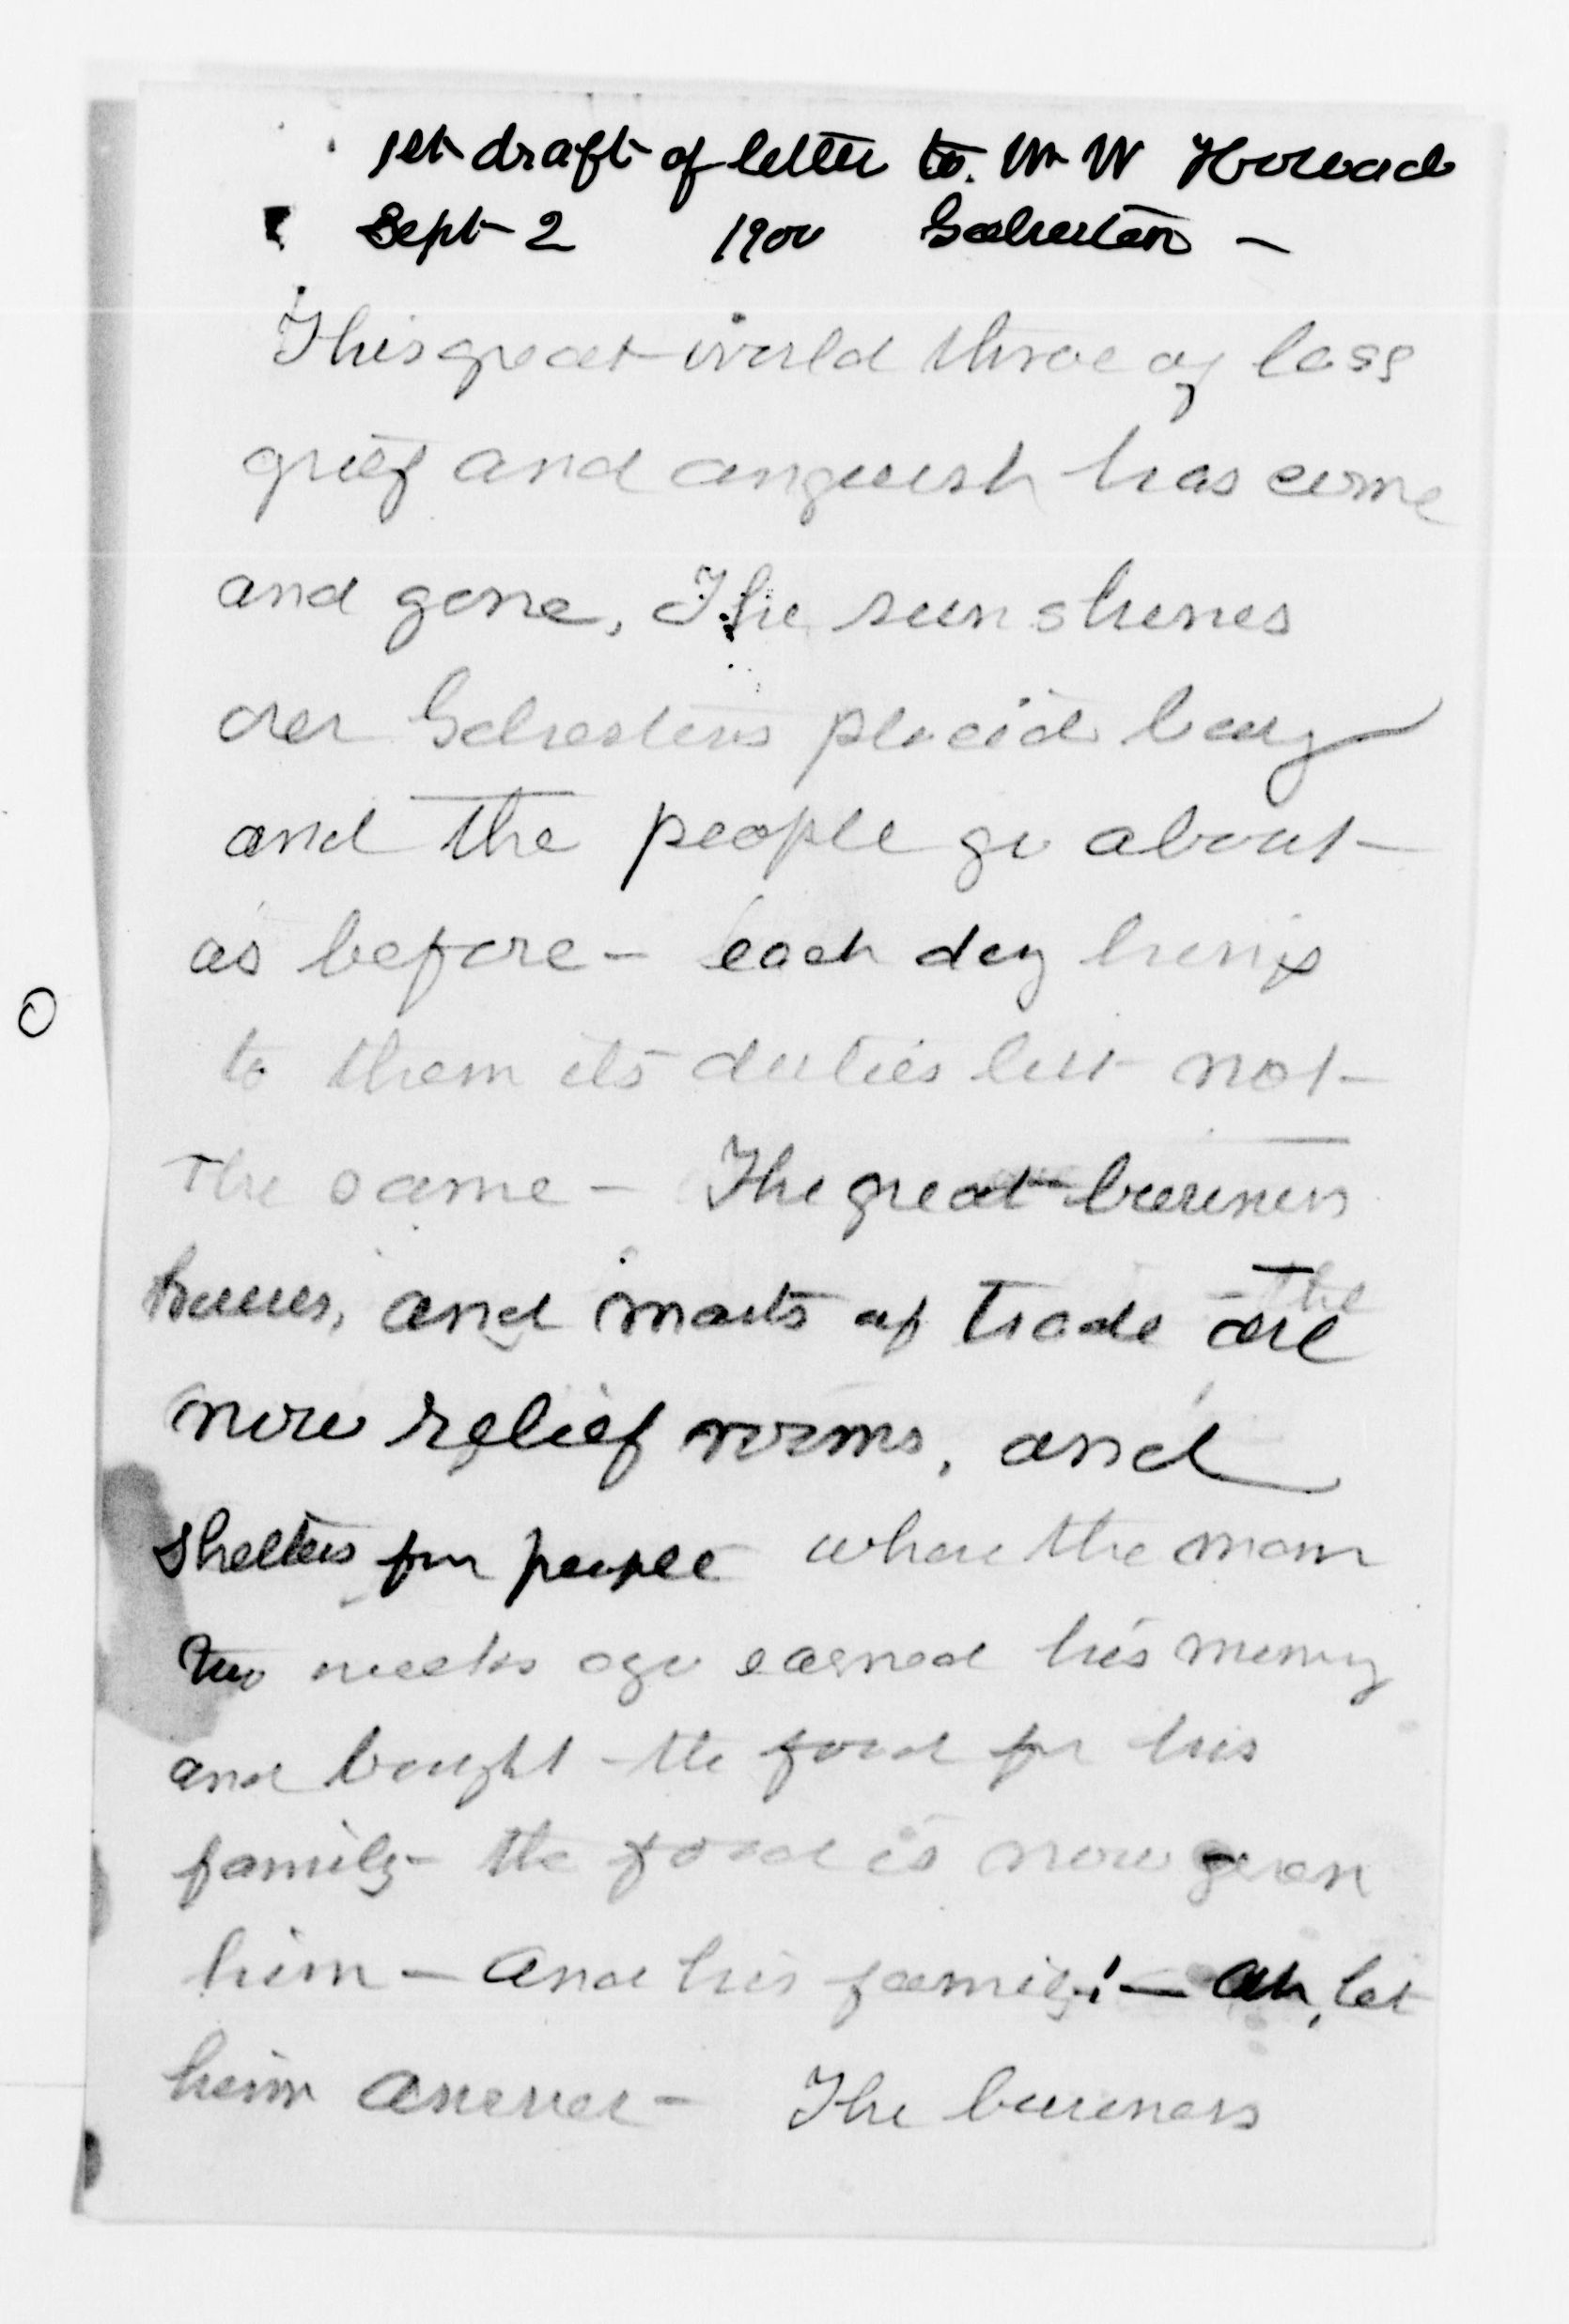 1st draft of letter to. Wm W Howard
Sept 2 1900 Galveston –
This great world throe of loss
grief and anguish has come
and gone, The sun shines
over Galvestons placid bay
and the people go about
as before – each day brings
to them its duties but not
the same – The great business
houses, and marts of trade are the
now relief rooms, and
shelters for people where the man
two weeks ago earned his money
and bought the food for his
family – the food is now given
him – and his family! – ah, let
him answer – The business